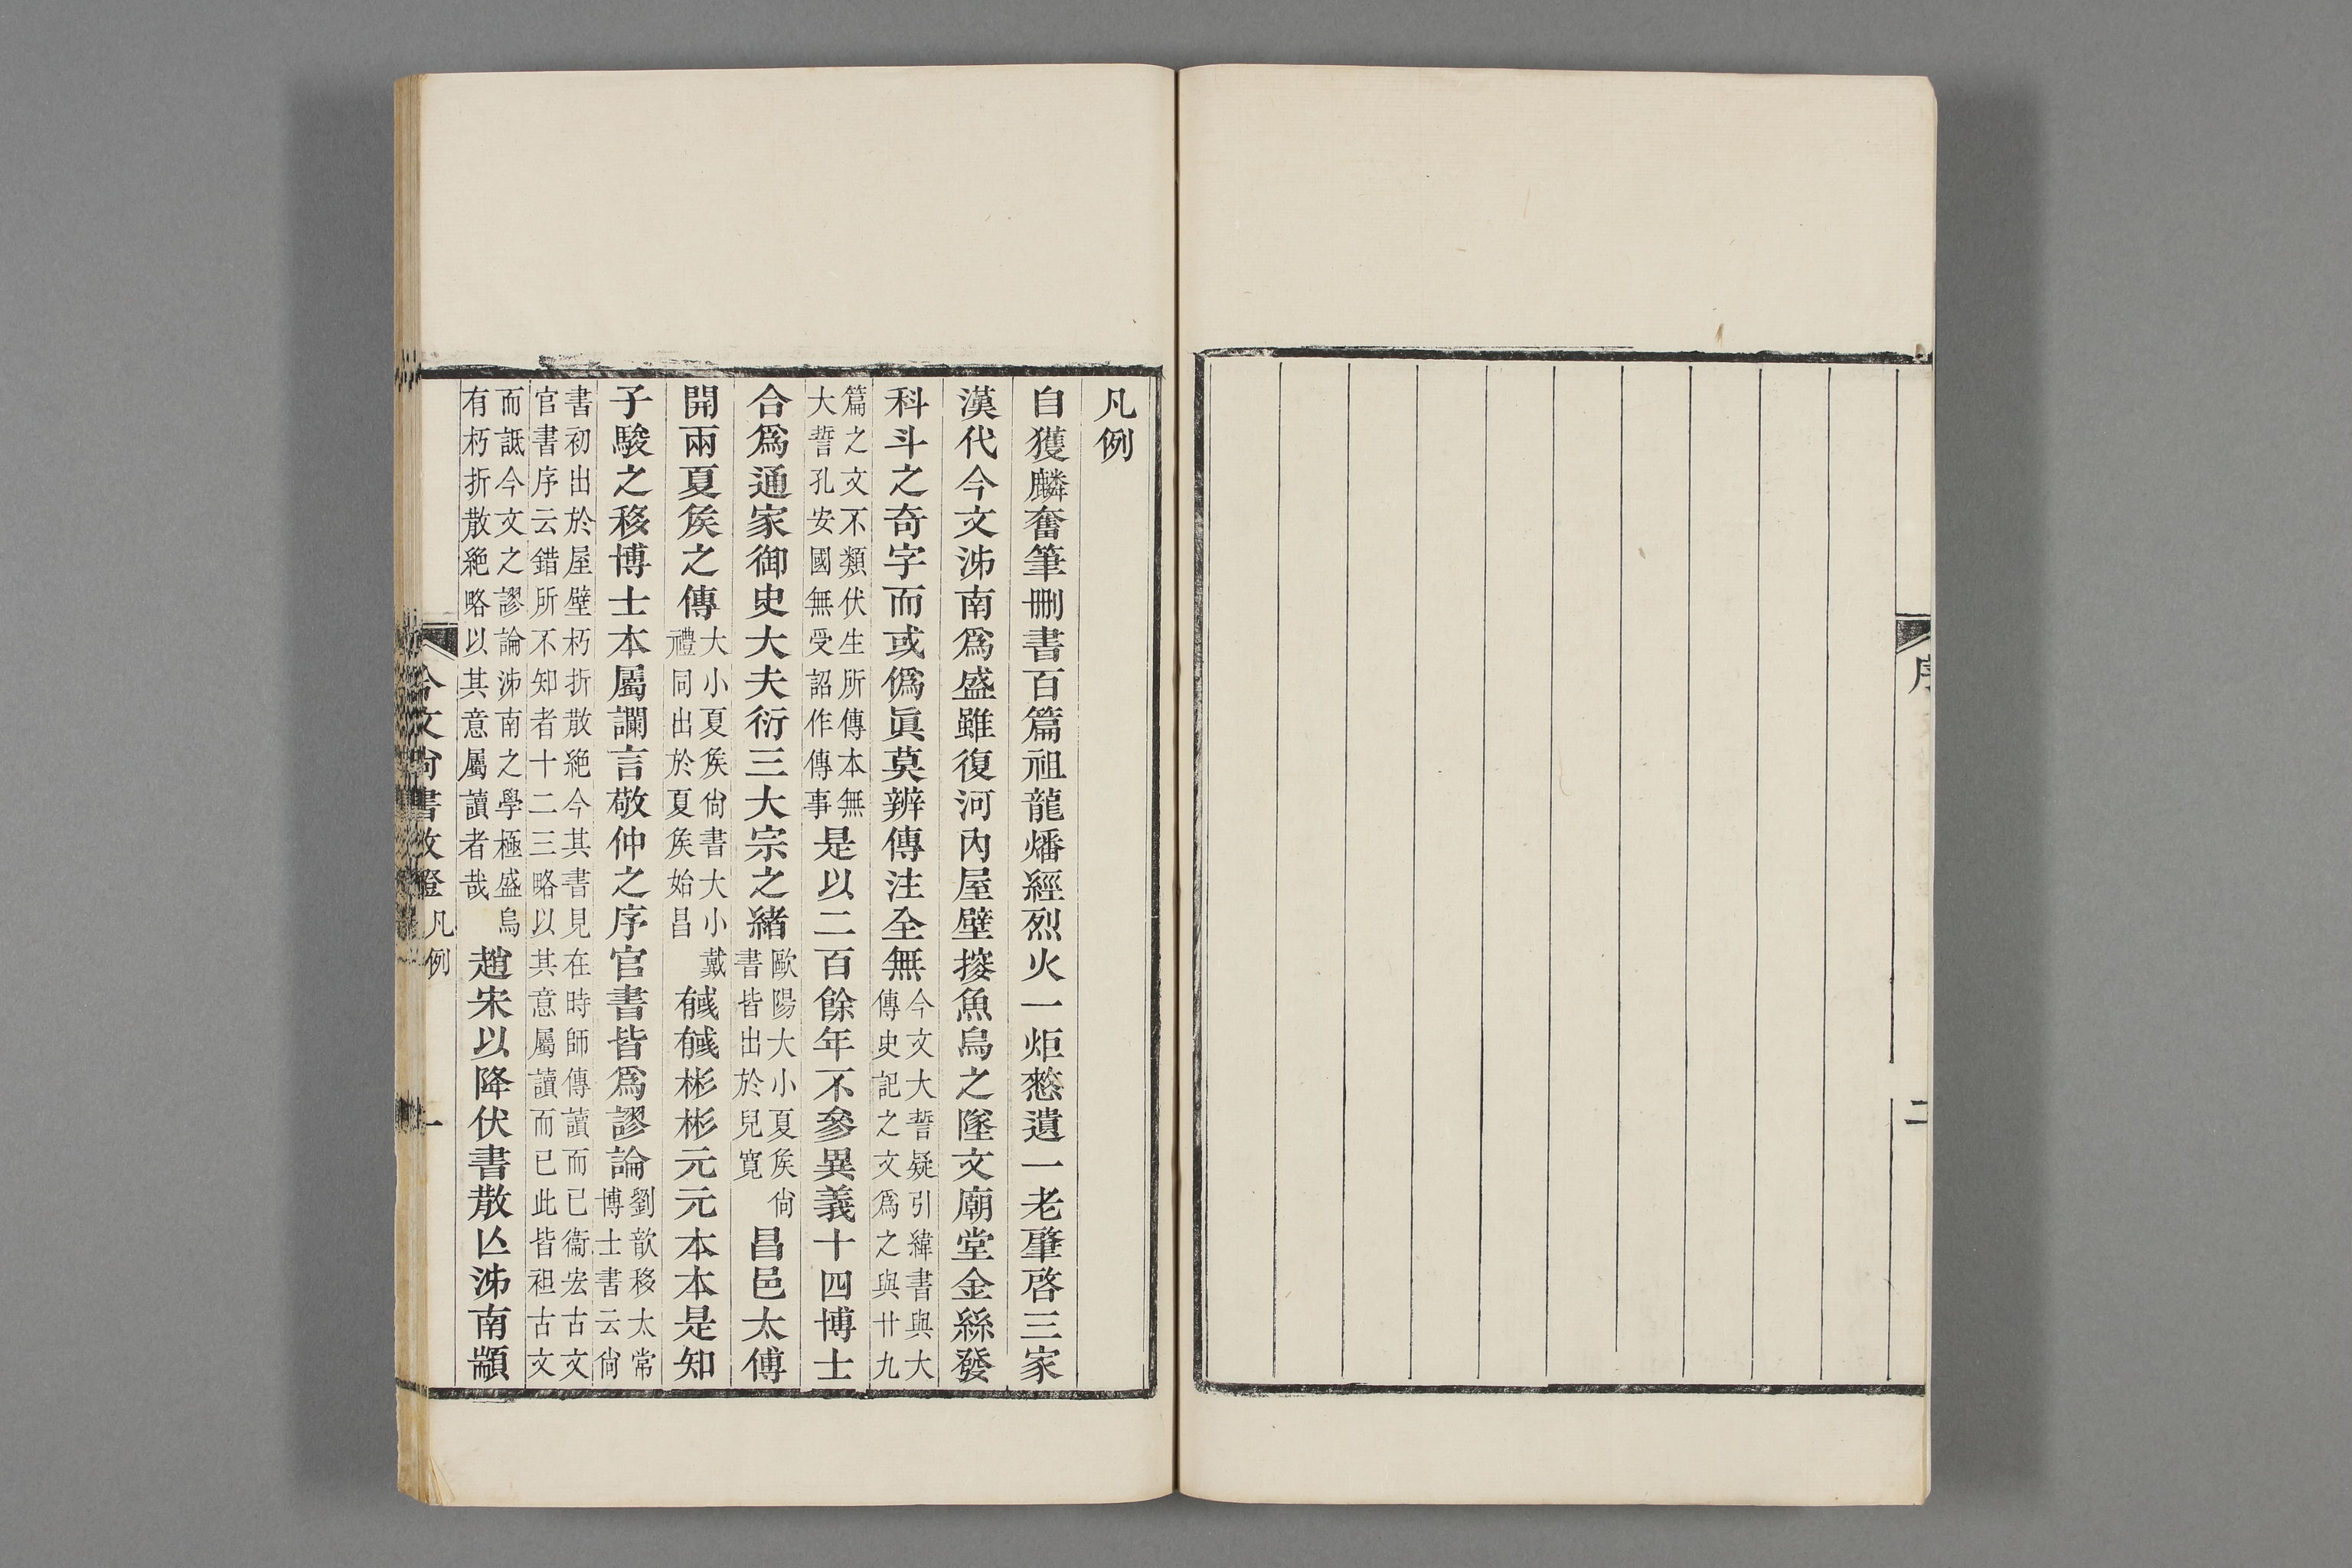 序
二
凡例
自獲麟奮筆刪書百篇祖龍燔經烈火一炬憗遺一老肇啓三家
漢代今文泲南爲盛雖復河內屋壁㨲魚烏之墜文廟堂金絲發
科斗之奇字而或僞眞莫辨傳注全無今文大誓疑引緯書與大傳史記之文爲之與廿九
篇之文不類伏生所傳本無大誓孔安國無受詔作傳事是以二百餘年不參異義十四博士
合爲通家御史大夫衍三大宗之緒歐陽大小夏矦尙書皆出於兒寬昌邑太傅
開兩夏矦之傳大小夏矦尙書大小戴禮同出於夏矦始昌䤋䤋彬彬元元本本是知
子駿之移博士本屬讕言敬仲之序官書皆爲謬論劉歆移太常博士書云尙
書初出於屋壁朽折散絶今其書見在時師傳讀而已衞宏古文官書序云錯所不知者十二三略以其意屬讀而已此皆袒古文
而詆今文之謬論泲南之學極盛烏有朽折散絶略以其意屬讀者哉趙宋以降伏書散亾泲南顓
今文尙書攷證 凡例
一